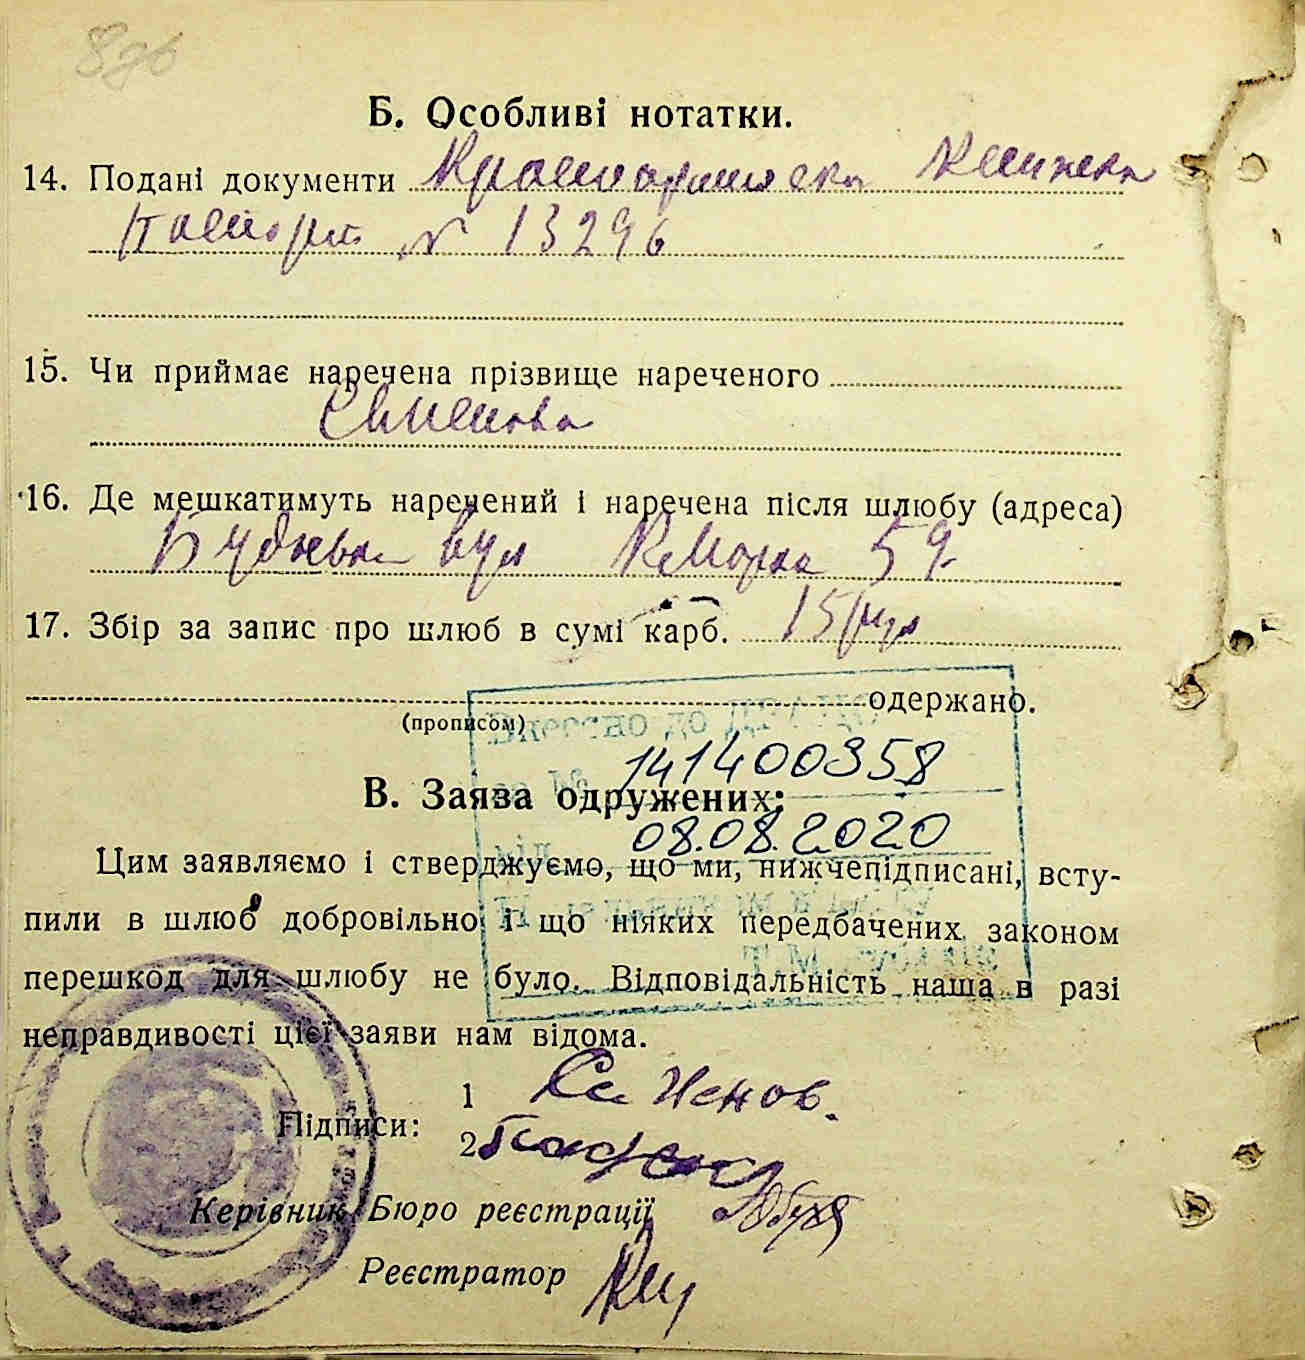 8зв
Б. Особливі нотатки.
14. Подані документи Красноармійська Книжка
паспорт № 13296
15. Чи приймає наречена прізвище нареченого
Семенова
16. Де мешкатимуть наречений і наречена після шлюбу (адреса)
вул К.Маркса 59
17. Збір за запис про шлюб в сумі карб. 15 руб
одержано.
(прописом)
141400358
В. Заява одружених:
08.08.2020
Цим заявляємо і стверджуємо, що ми, нижчепідписані, всту-
пили в шлюб добровільно і що ніяких передбачених законом
перешкод для шлюбу не було. Відповідальність наша в разі
неправдивості цієї заяви нам відома.
1 Семенов.
Підписи:
2
Керівник Бюро реєстрації
Реєстратор